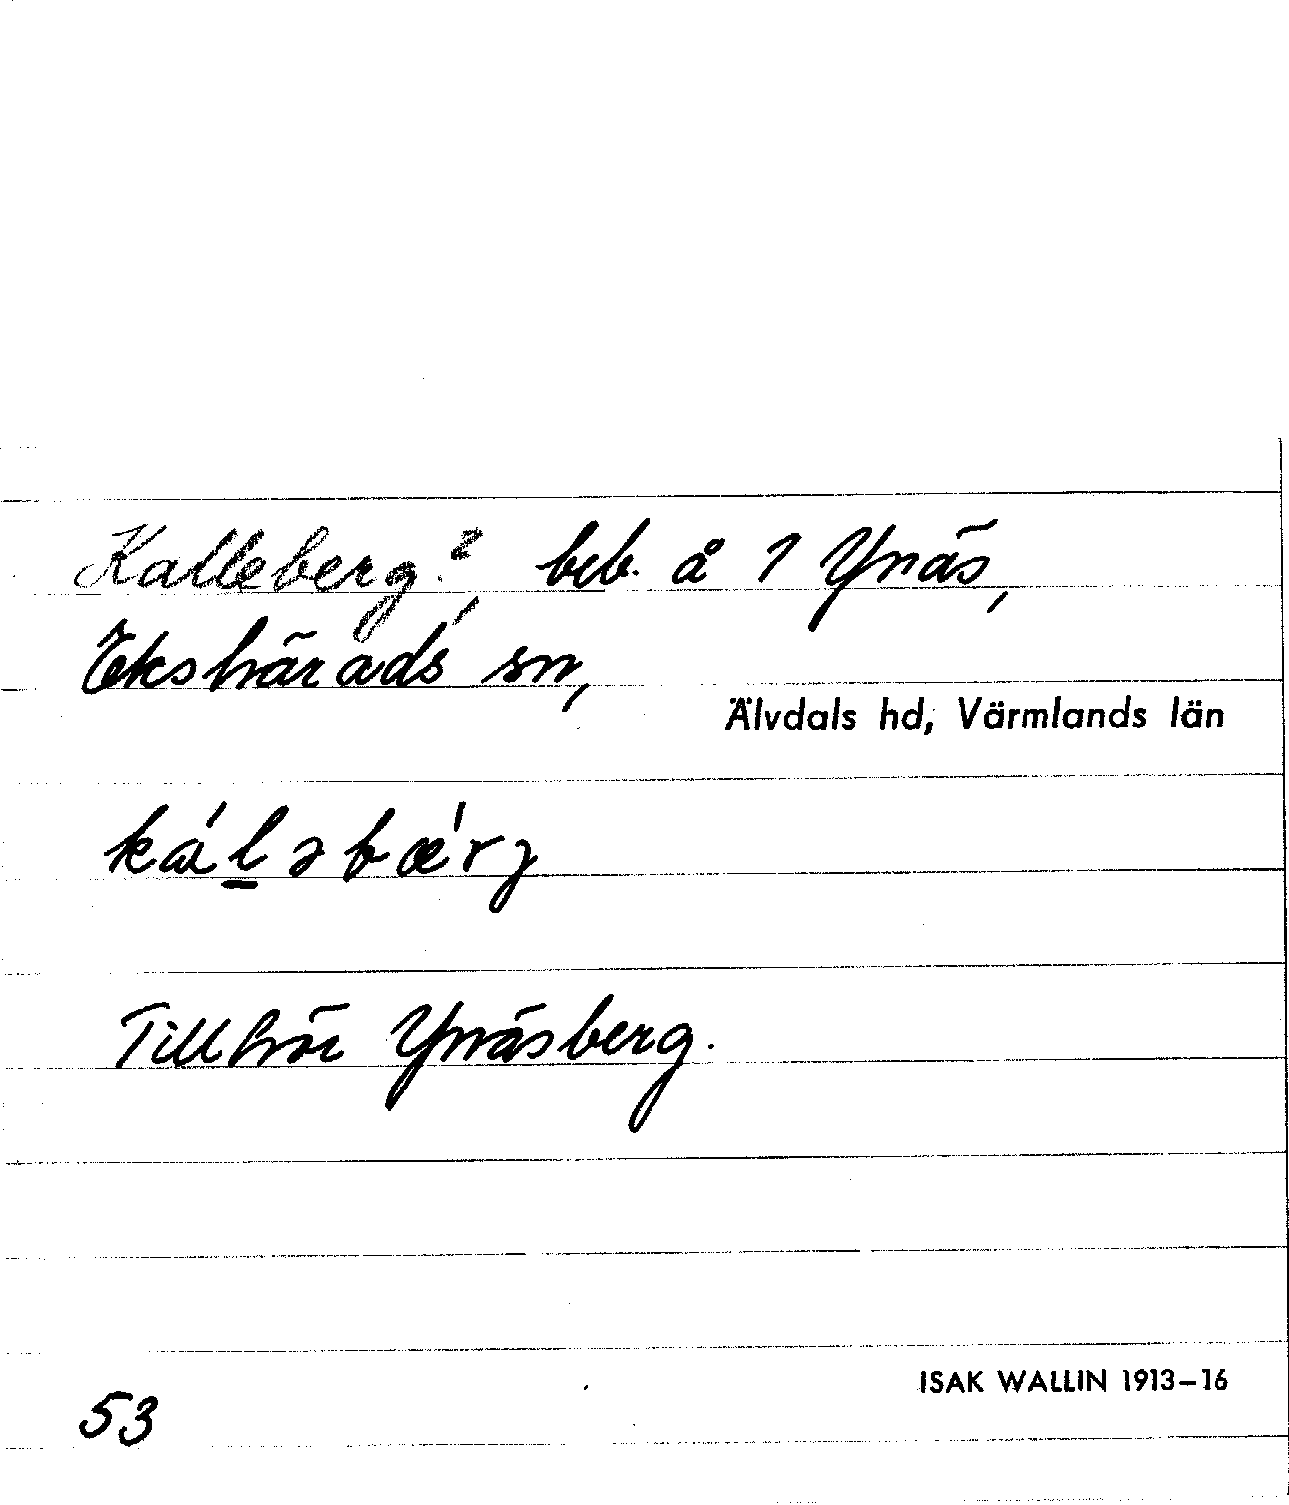 Kalleberg?, beb. å 1 Ynäs,
Ekshärads sn,
Älvdals hd, Värmlands län
ká̱lǝbǽrj
Tillhör Ynäsberg.
ISAK WALLIN 1913–16
53